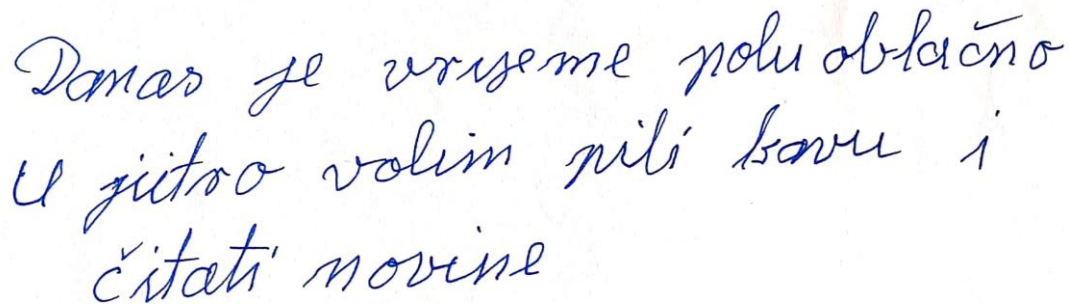 Danas je vrijeme polu oblačno
U jutro volim piti kavu i
čitati novine